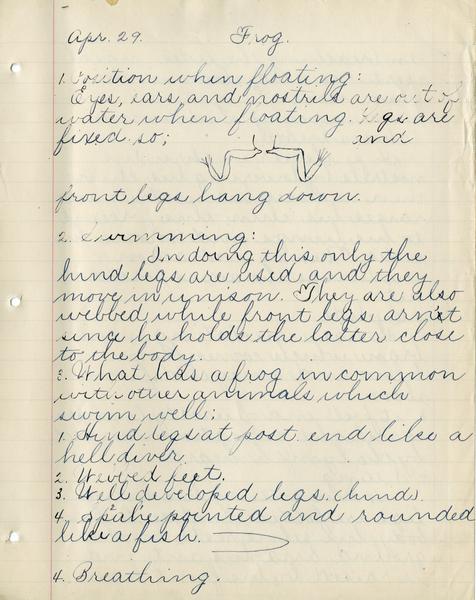 Apr. 29. Frog.
1. Position when floating:
Eyes, ears, and nostrils are out of
water when floating. Legs are
fixed so; and
front legs hang down.
2. Swimming:
In doing this only the
hind legs are used and they
move in unison. They are also
webbed while front legs arn't
since he holds the latter close
to the body.
3. What has a frog in common
with other animals which
swim well:
1. Hind legs at post. end like a
hell diver.
2. Webbed feet.
3. Well developed legs. (hind).
4. pointed and rounded
like a fish.
4. Breathing.